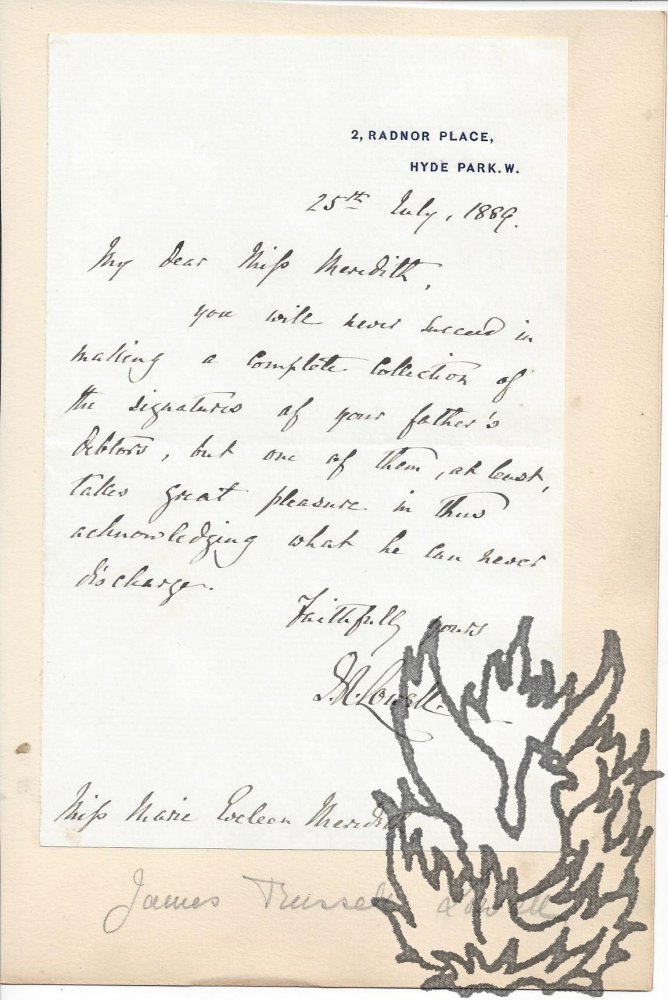 2, RADNOR PLACE,
HYDE PARK. W.
25th July, 1889.
My dear Miss Meredith,
you will never succeed in
making a complete collection of
the signatures of your father's
debtors, but one of them, at least,
takes great pleasure in thus
acknowledging what he can never
discharge.
Faithfully yours
J. R. Lowell.
Miss Marie Eveleen Meredith
James Russell Lowell